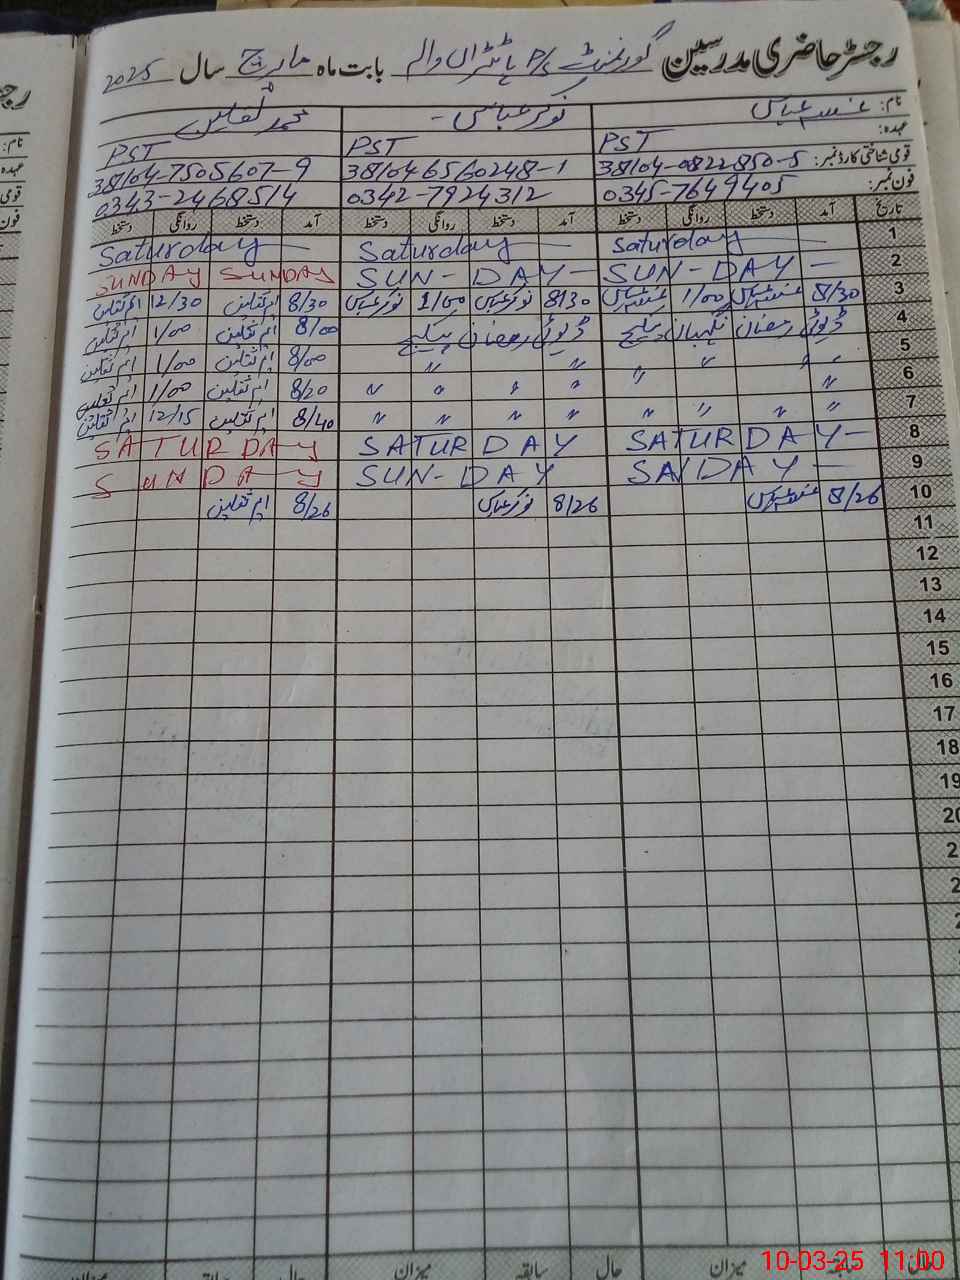 رجسٹر حاضری مدرسین گورنمنٹ P/S بابت ماہ مارچ سال 2025
نام: عباس نوکر عباس محمد ثقلین
عہدہ: PST PST PST
قومی شناختی کارڈ نمبر: 38104-0822850-5 38104 6560248-1 38104-7505607-9
فون نمبر: 0345-7649405 0342-7924312 0343-2468514
تاریخ آمد دستخط روانگی دستخط آمد دستخط روانگی دستخط آمد دستخط روانگی دستخط
1 Saturday Saturday Saturday
2 SUN-DAY- SUN-DAY- SUNDAY SUNDAY
3 8/30 1/00 8/30 نوکر عباس 1/00 نوکر عباس 8/30 ایم ثقلین 12/30 ایم ثقلین
4 ڈیوٹی رمضان نگہبان پیکیج ڈیوٹی رمضان پیکیج 8/00 ایم ثقلین 1/00 ایم ثقلین
5 〃 〃 〃 〃 〃 8/00 ایم ثقلین 1/00 ایم ثقلین
6 〃 〃 〃 〃 〃 〃 8/20 ایم ثقلین 1/00 ایم ثقلین
7 〃 〃 〃 〃 〃 〃 〃 〃 8/40 ایم ثقلین 12/15 ایم ثقلین
8 SATURDAY- SATURDAY SATURDAY
9 SA/DAY- SUN-DAY SUNDAY
10 8/26 8/26 نوکر عباس 8/26 ایم ثقلین
11
12
13
14
15
16
17
18
19
20
2
2
حال سابقہ میزان حال سابقہ میزان حال
10-03-25 11:00